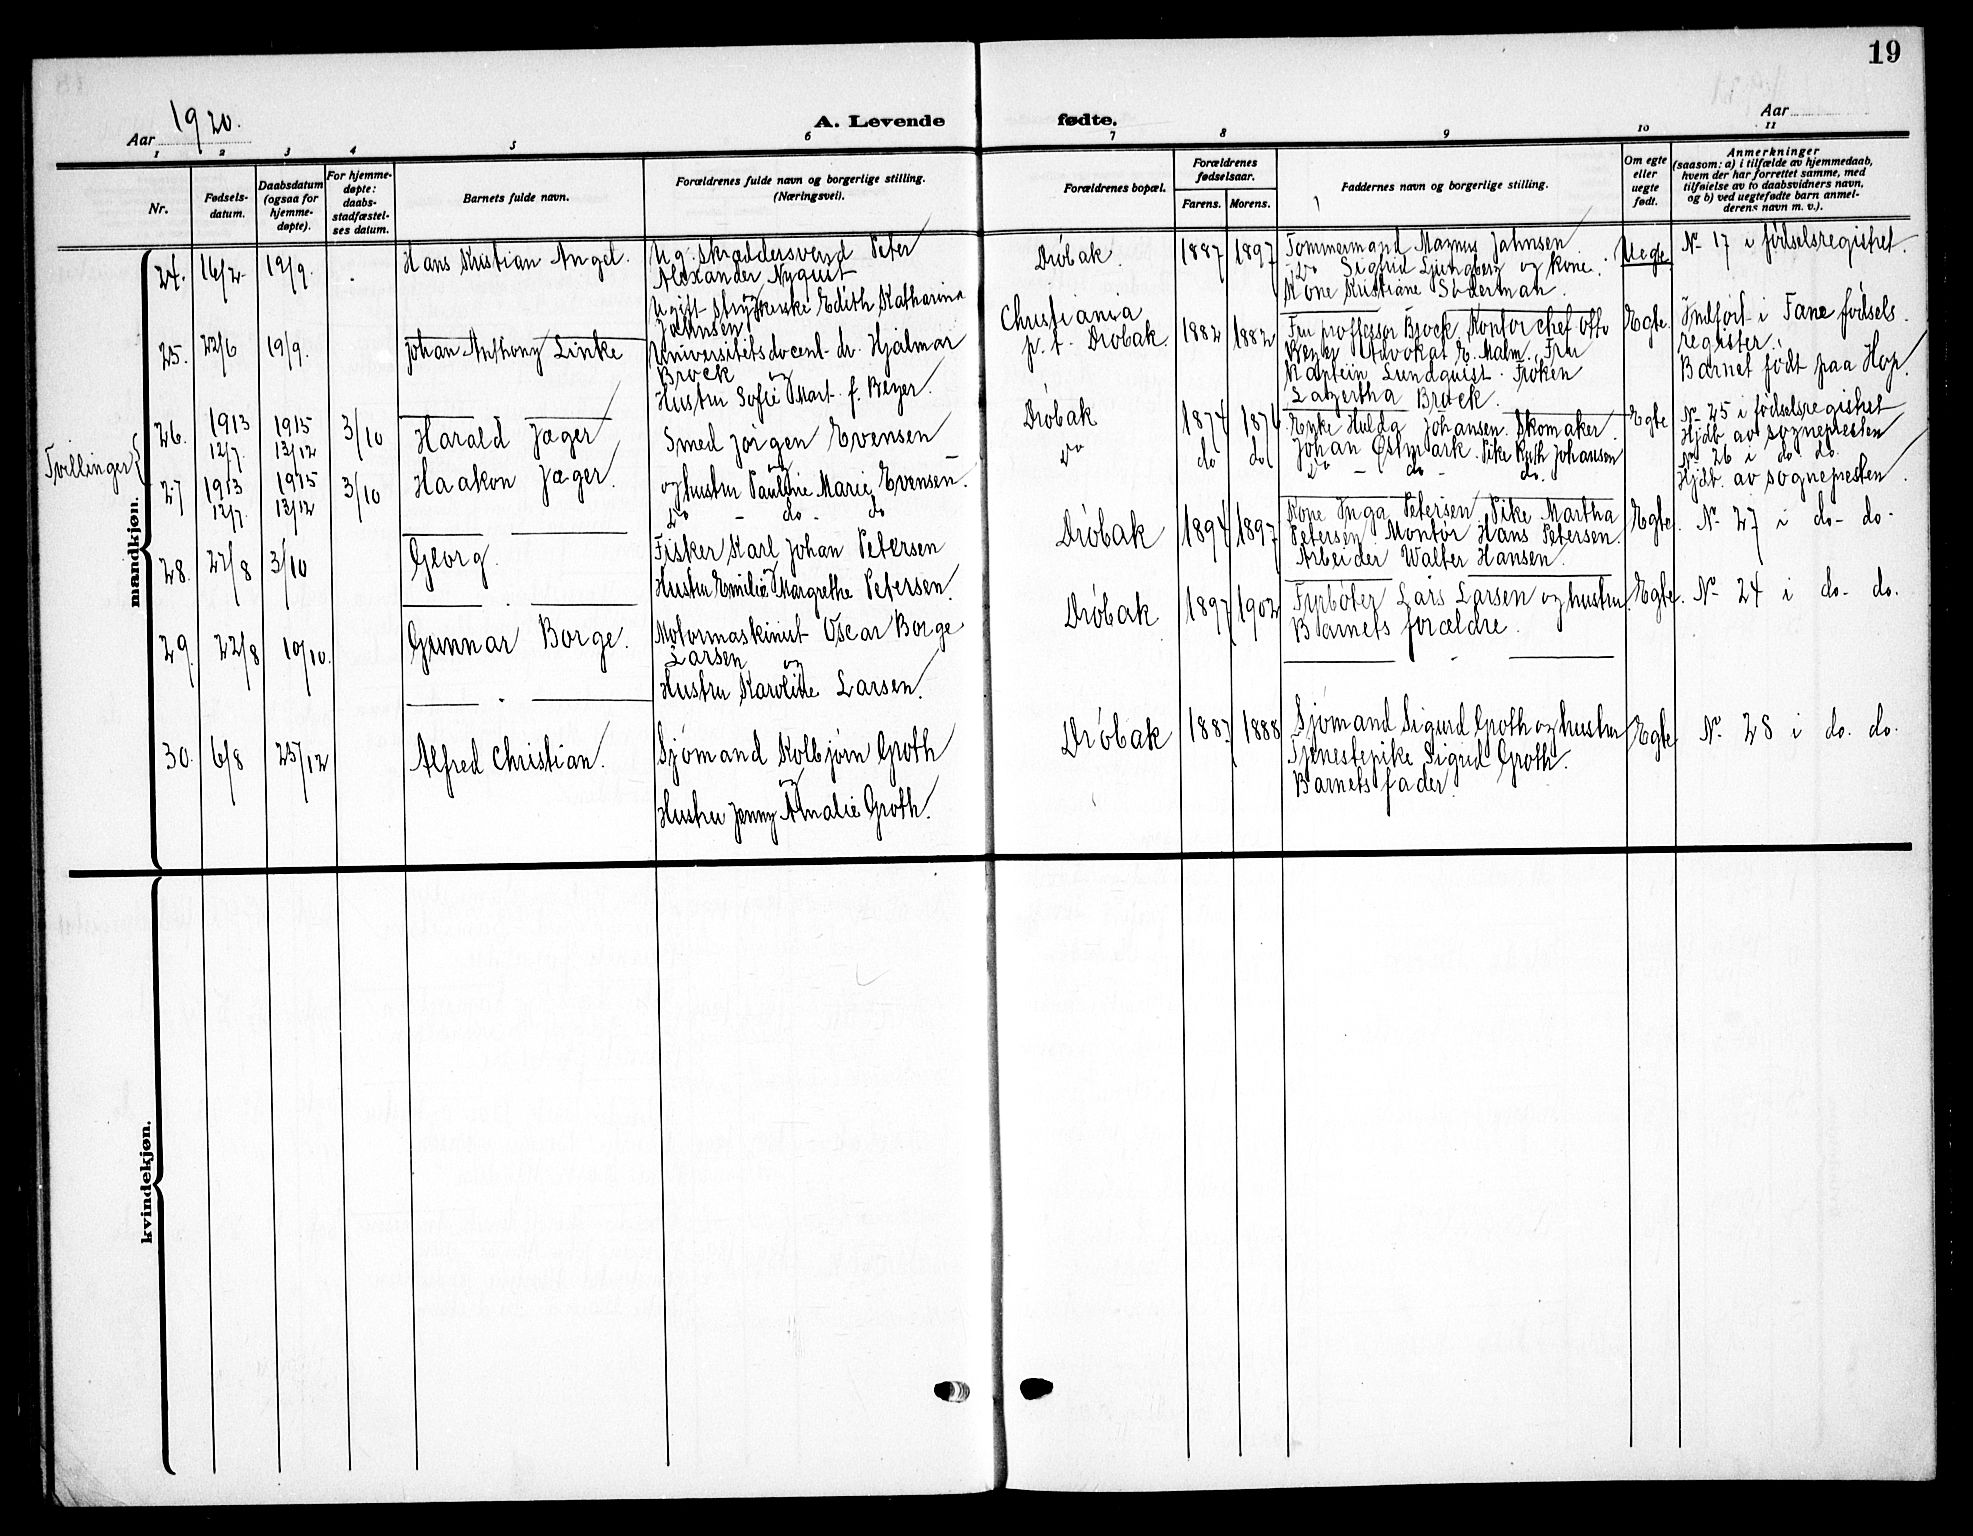 19
Aar 1920.
A. Levende fødte.
Aar
1 2 3 4 5 6 7 8 9 10 11
Nr.
Fødsels-
datum.
Daabsdatum
(ogsaa for
hjemme-
døpte).
For hjemme-
døpte:
daabs-
stadfæstel-
ses datum.
Barnets fulde navn.
Forældrenes fulde navn og borgerlige stilling.
(Næringsvei).
Forældrenes bopæl.
Forældrenes
fødselsaar.
Farens. Morens.
Faddernes navn og borgerlige stilling.
Om egte
eller
uegte
født.
Anmerkninger
(saasom: a) i tilfælde av hjemmedaab,
hvem der har forrettet samme, med
tilføielse av to daabsvidners navn,
og b) ved uegtefødte barn anmel-
derens navn m. v.).
mandkjøn.
24. 16/2 19/9. Hans Kristian Angel.
Ug. Skræddersvend Peter
Alexander Nyquist
og
Ugift Strykerske Edith Katharina
Jahnsen
Drøbak. 1887 1897
Tømmermand Magnus Jahnsen
Do Sigfrid Ljungberg og kone.
Kone Kristiane Søderman.
Uegte.
No 17 i fødselsregistret.
25. 22/6 19/9. Johan Anthony Linke
Universitetsdocent dr. Hjalmar
Brock
og
Hustru Sofie Mart. f. Beyer.
Christiania
p. t. Drøbak. 1882 1882
Fru proffessor Brock, Kontorchef Otto
Beyer Advokat E. Malm, Fru
Kaptein Lundquist. Frøken
Brock.
Egte.
Indført i Fane fødsels.
register.
Barnet født paa Hop.
Tvillinger
26. 1913 12/7. 1915 13/12 3/10 Harald Jæger
Smed Jørgen Evensen
og
og hustru Pauline Marie Evensen.
Drøbak 1874 1876
Enke Hulda Johansen. Skomaker
Johan Østmark. Pike Ruth Johansen
Egte
No 25 i fødselsregistret
Hjdb. av sognepresten
27 1913 12/7. 1915 13/12 3/10 Haakon Jæger.
Do - do - do
Do do do
Do - do - do.
No 26 i do do.
Hjdb. av sognepresten
28. 27/8 3/10 Georg.
Fisker Karl Johan Petersen
og
Hustru Emilie Margrethe Petersen.
Drøbak 1894 1897
Kone Inga Petersen, Pike Martha
Petersen Montør Hans Petersen.
Arbeider Walter Hansen.
Egte.
No 27 i do- do-
29. 22/8 10/10. Gunnar Borge.
Motormaskinist Oscar Borge
Larsen
og
Hustru Karoline Larsen.
Drøbak 1897 1902
Fyrbøter Lars Larsen og hustru.
Barnets forældre.
Egte.
No 24 i do- do.
30. 6/8 25/12 Alfred Christian.
Sjømand Kolbjørn Groth
og
Hustru Jenny Amalie Groth.
Drøbak 1887 1888
Sjømand Sigurd Groth og hustru
Tjenestepike Sigrid Groth.
Barnets fader.
Egte
No 28 i do. do.
kvindekjøn.